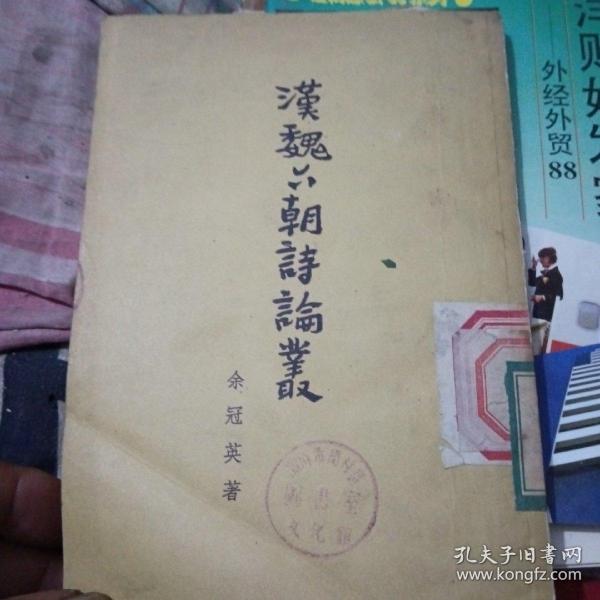 漢魏六朝詩論叢
余冠英著
圖書室
文化館
外经外贸88
孔夫子旧书网
www.kongfz.com